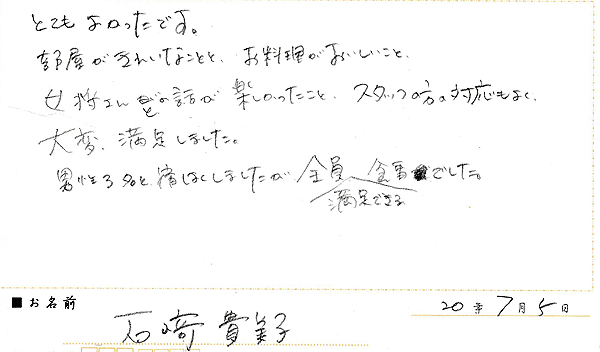 とてもよかったです。
部屋がきれいなことと、お料理がおいしいこと、
女将さんとの話が楽しかったこと、スタッフの方の対応もよく、
大変、満足しました。
男性3名と宿はくしましたが全員 食事でした。
満足できる
■お名前
石崎 貴美子
20年7月5日